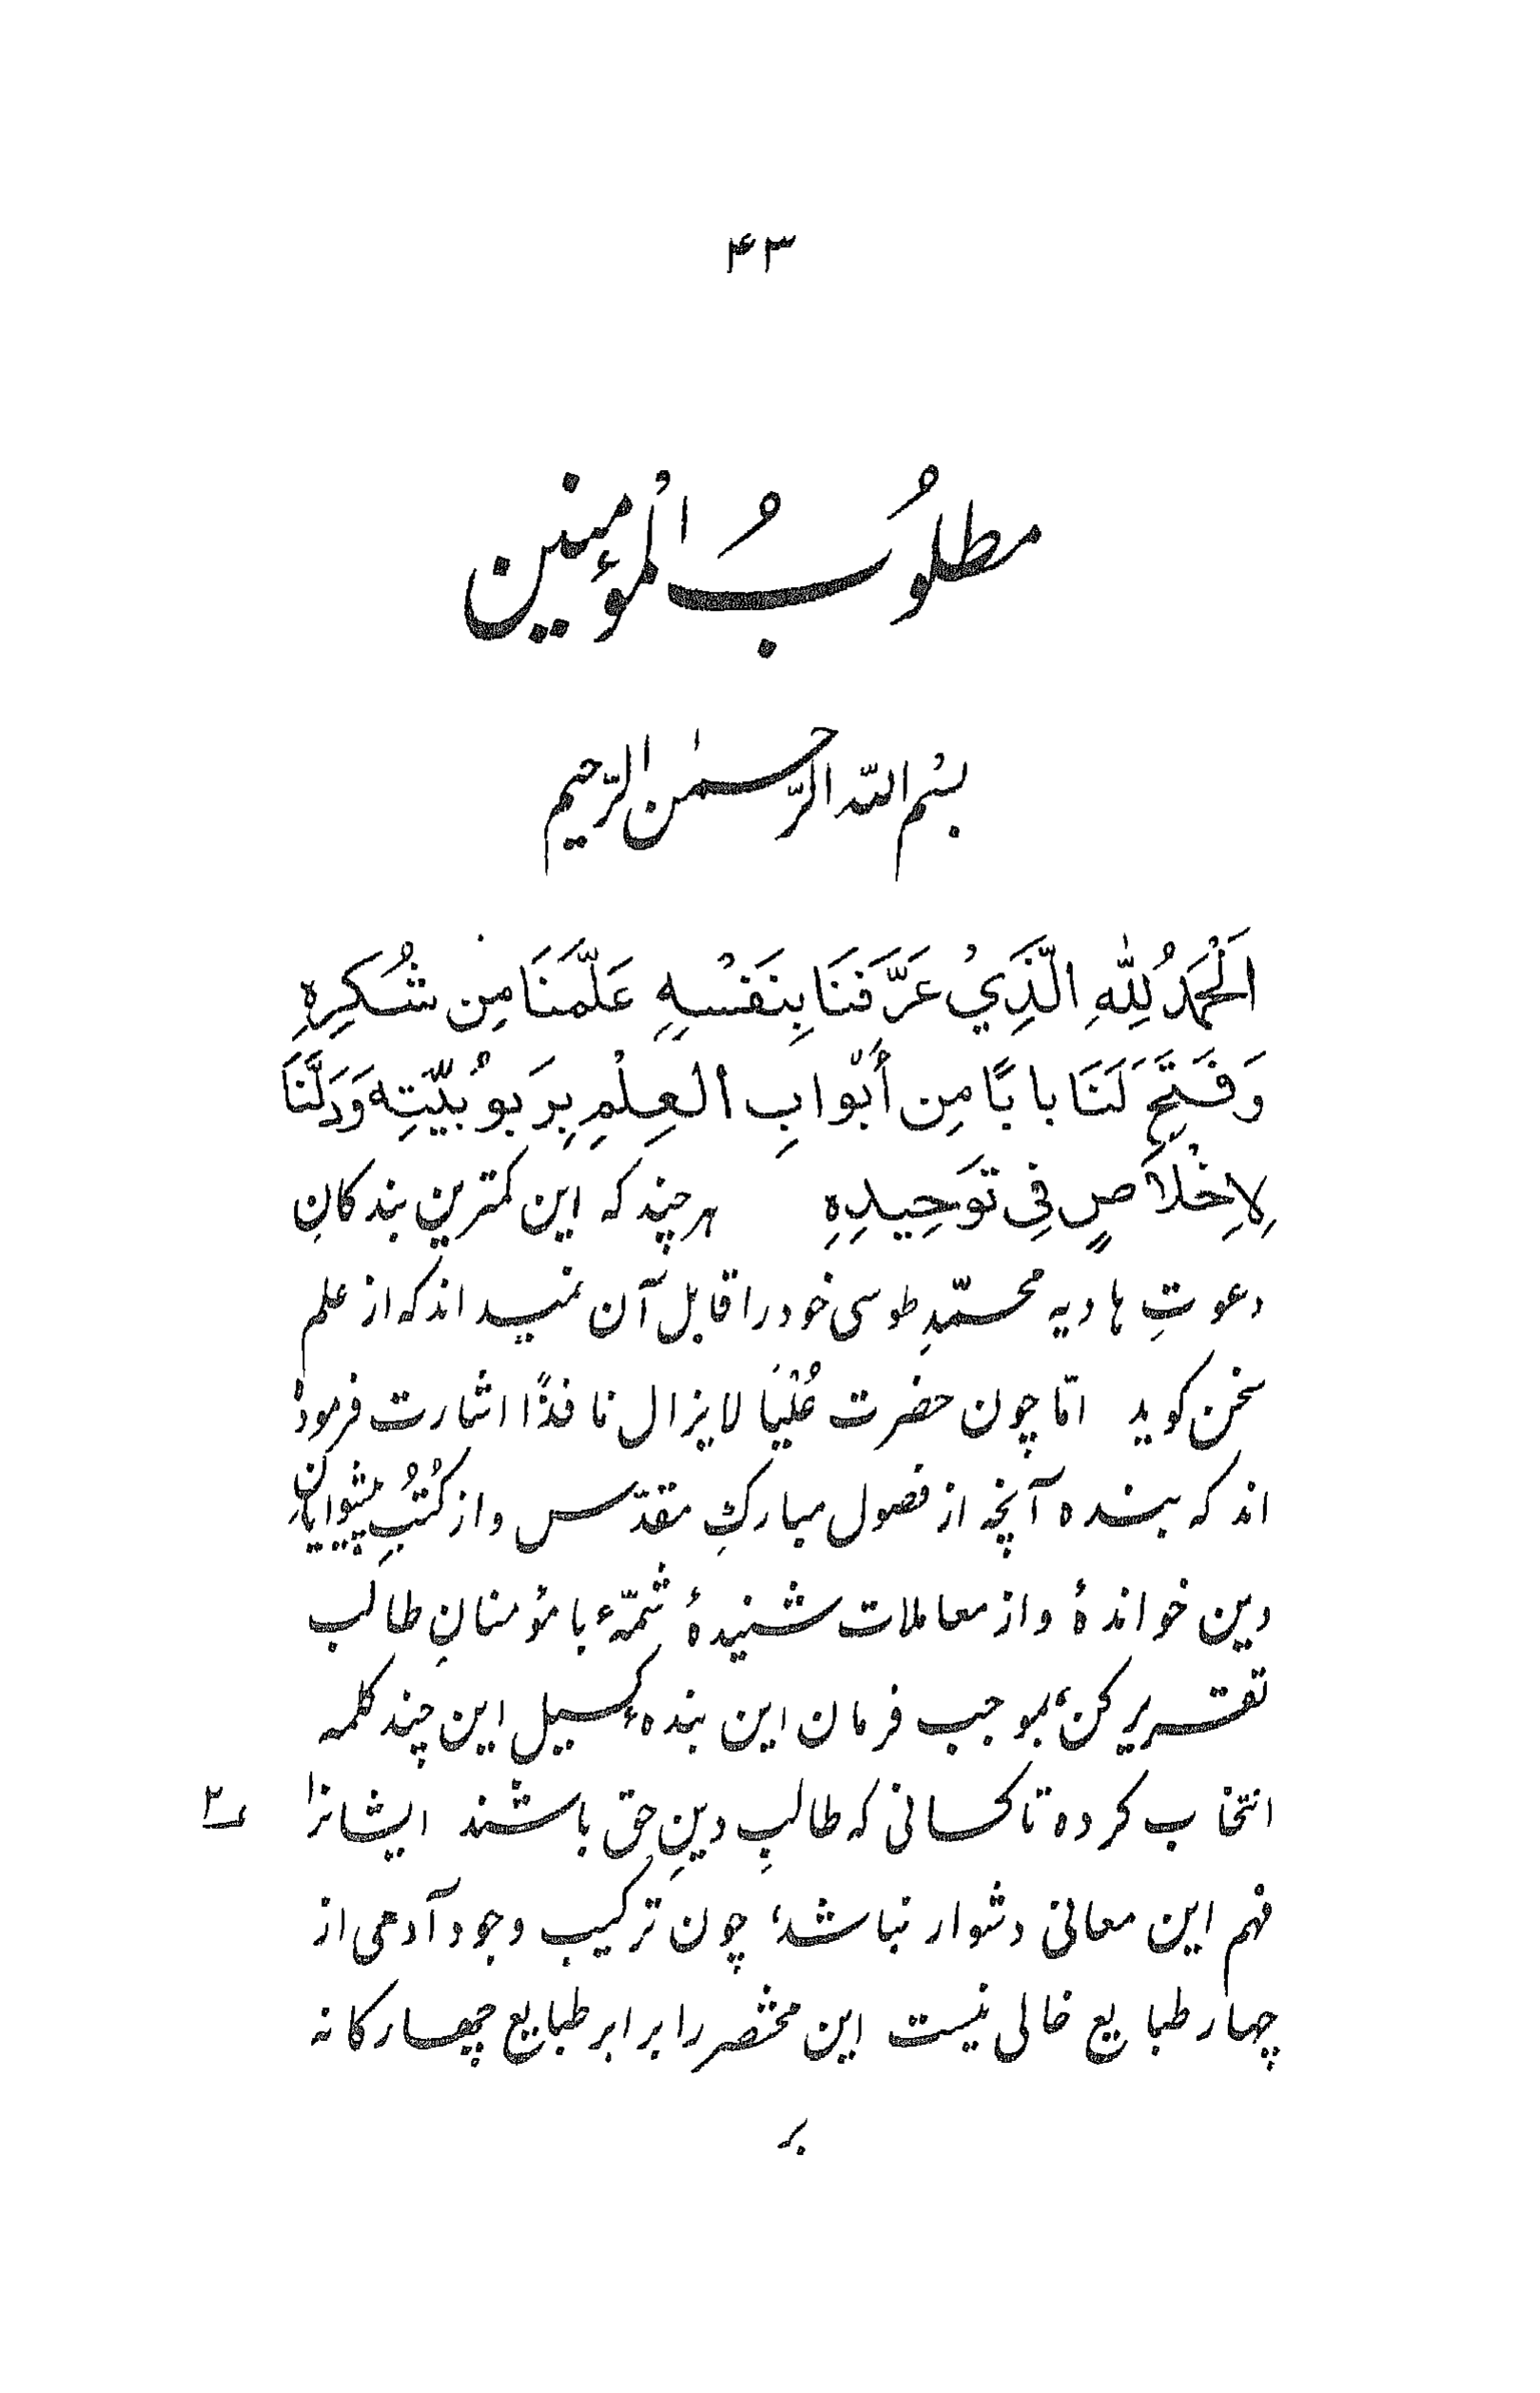 ۴۳
مطلوبُ الْمؤمنین
بسْم اللّه الرّحمٰن الرّحیم
اَلْحَمْدُ لِلّٰهِ الَّذِيْ عَرَّفَنَا بِنَفْسِهِ عَلَّمَنَا مِن شُكِرِهِ
وَفَتَحَ لَنَا بابًا مِن أَبْوابِ العِلْمِ بِرَبوُبيّتِه وَدَلَّنَا
لِاِخْلَاصٍ فِي تَوَحِيدِهِ هر چند که این کمترین بندکانِ
دعوتِ هادیه محمّدِ طوسی خود را قابل آن نمیداند که از علم
سخن کوید امّا چون حضرت عُلْیَا لایزال نافذًا اشارت فرموده
اند که بنده آنچه از فصول مبارکِ مقدّس و از کُتُبِ پیشوایانِ
دین خواندهٔ و از معاملات شنیدهٔ شمّهء با مؤمنانِ طالب
تقریر کن، بموجب فرمان این بندهء کسیل این چند کلمه
انتخاب کرده تا کسانی که طالبِ دینِ حق باشند ایشانرا ۲
فهم این معانی دشوار نباشد، چون ترکیب وجود آدمی از
چهار طبایع خالی نیست این مختصر را برابر طبایع چهارکانه
بر